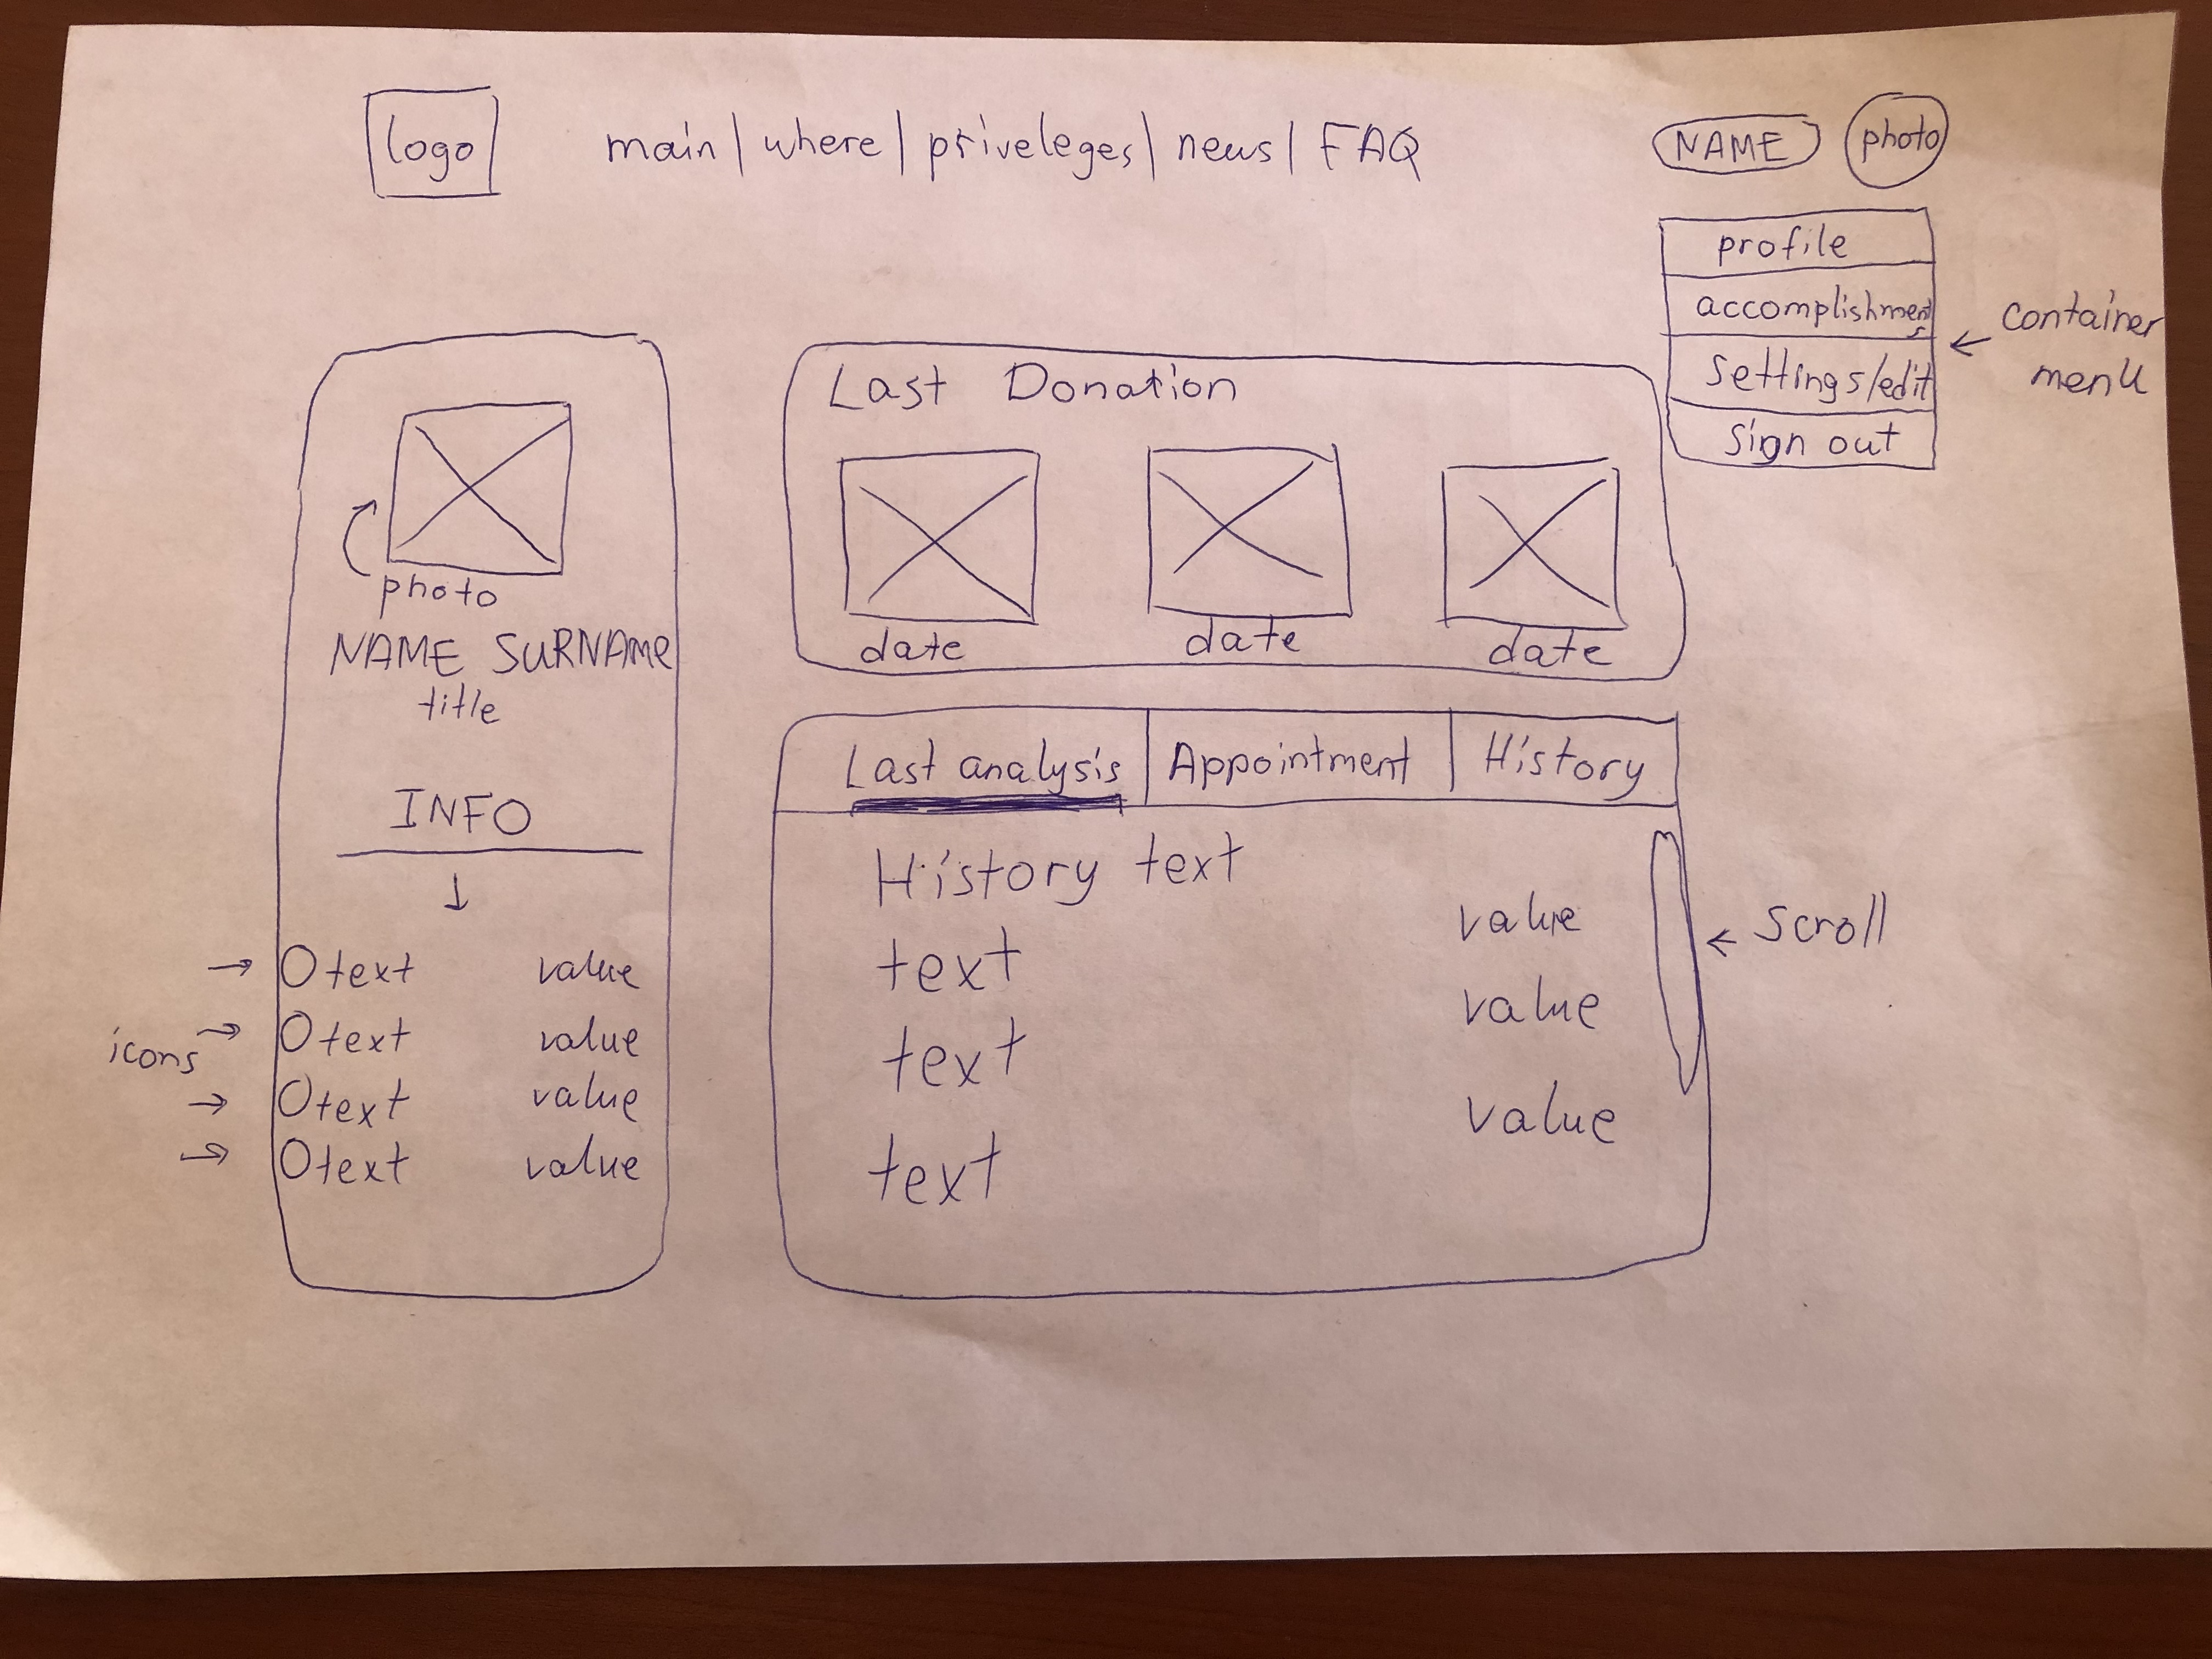 logo
main | where | priveleges | news | FAQ
NAME
photo
profile
accomplishments
settings/edit
sign out
container
menu
photo
NAME SURNAME
title
INFO
icons
text value
text value
text value
text value
Last Donation
date date date
Last analysis | Appointment | History
History text
value
text
value
text
value
text
scroll